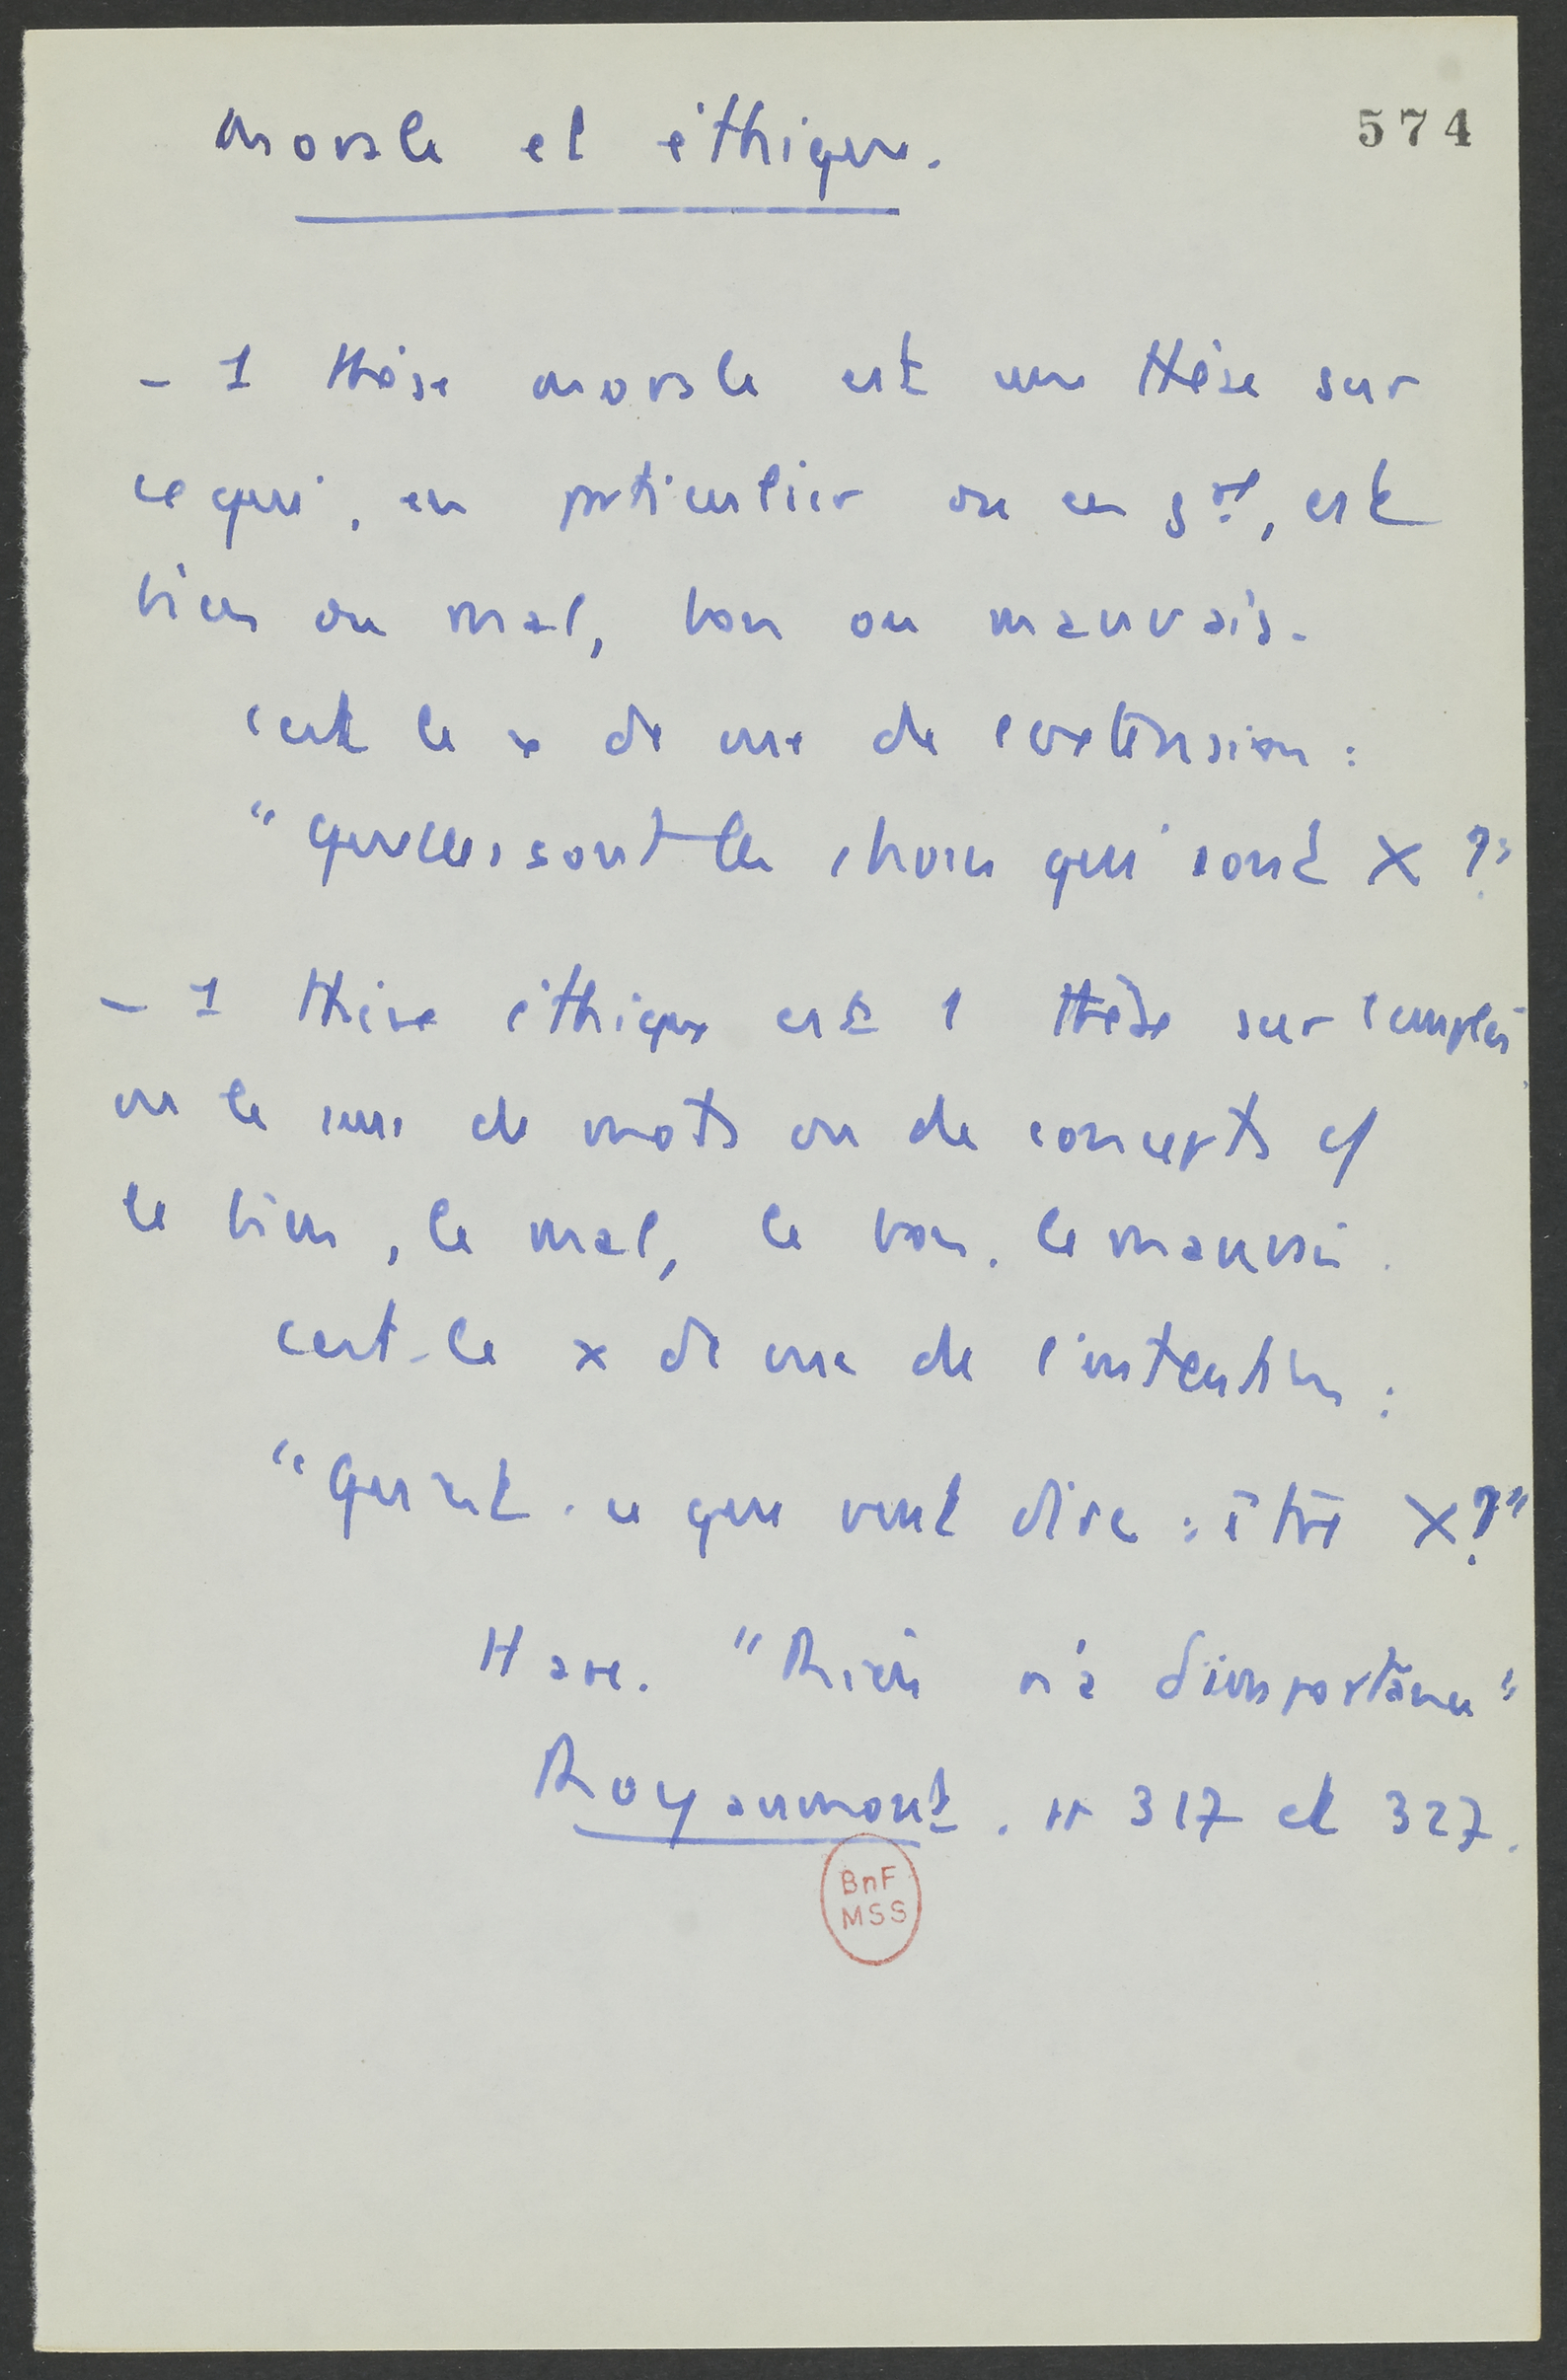 574
Morale et éthique.
- 1 thèse morale est une thèse sur
ce qui, en particulier ou en gral, est
bien ou mal, bon ou mauvais.
C'est le x de vue de l'extension :
"Quelles sont les choses qui sont X ?"
- 1 thèse éthique est 1 thèse sur l'emploi
ou le sens de mots ou de concepts cf
le bien, le mal, le bon, le mauvais.
C'est le x de vue de l'intention :
"Qu'est-ce que veut dire : être X ?"
Hare. "Rien n'a d'importance"
Royaumont. 317 et 327.
BnF
MSS